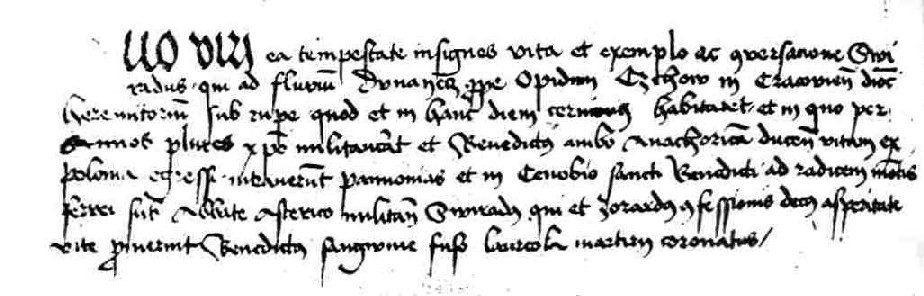 uo viri ea tempestate insignes vita et exemplo ac ꝯversacione Swi
radus qui ad fluviū Dunaiecz ꝓpe Opidum Czchow in Cracovien̄ dioc̄
heremitoriū sub rupe quod et in hanc diem cernitur habitaret et in quo per
annos plures xp̄o militaverāt et Benedictus ambo Anachoritā ducen̄ vitam ex
polonia egressi intraverūnt pannonias et in Cenobio sancti Benedicti ad radicem mōtis
ferrei sūt Abbate Asterico militan̄ Swiradus qui et Zorardus ꝯfessionis decus asperitate
vite ꝓmeruit Benedictus sanguine fuso laureola martirii coronatus